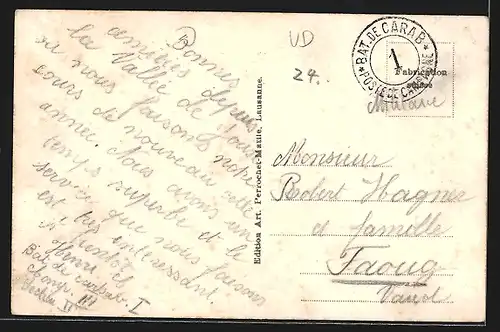 Bonnes
amitiés depuis
la Vallée de Joux
où nous faisons notre
cours de nouveau cette
année. Nous avons un
temps superbe et le
service que nous faisons
est très intéressant.
A bientôt
Henri
Bat. de carab. I
Comp. III
Section II
Edition Art. Perrochet-Matile, Lausanne.
VD
24.
BAT. DE CARAB.
1
POSTE DE CAMPAGNE
Fabrication
suisse
Militaire
Monsieur
Robert Hagner
et famille
Faoug
Vaud